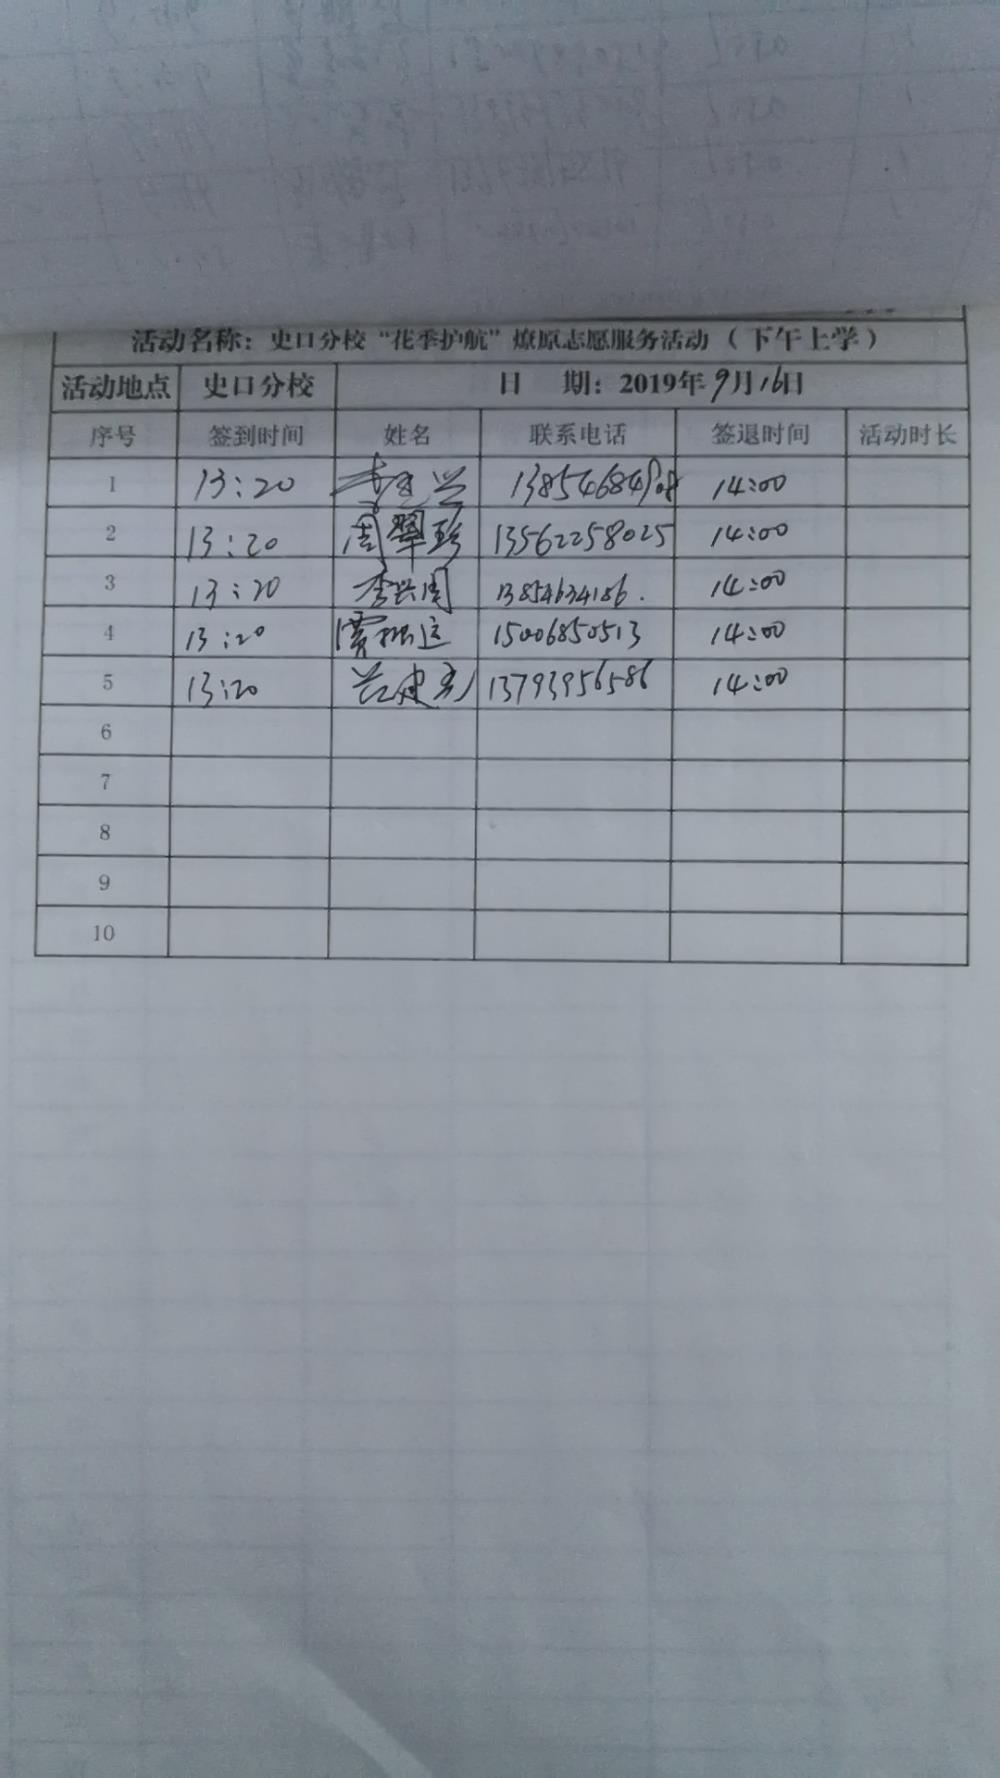 活动名称：史口分校“花季护航”燎原志愿服务活动（下午上学）
活动地点 史口分校 日 期：2019年9月16日
序号 签到时间 姓名 联系电话 签退时间 活动时长
1 13:20 14:00
2 13:20 周翠珍 13562258025 14:00
3 13:20 李兴周 13854634186. 14:00
4 13:20 15006850513 14:00
5 13:20 13793956586 14:00
6
7
8
9
10